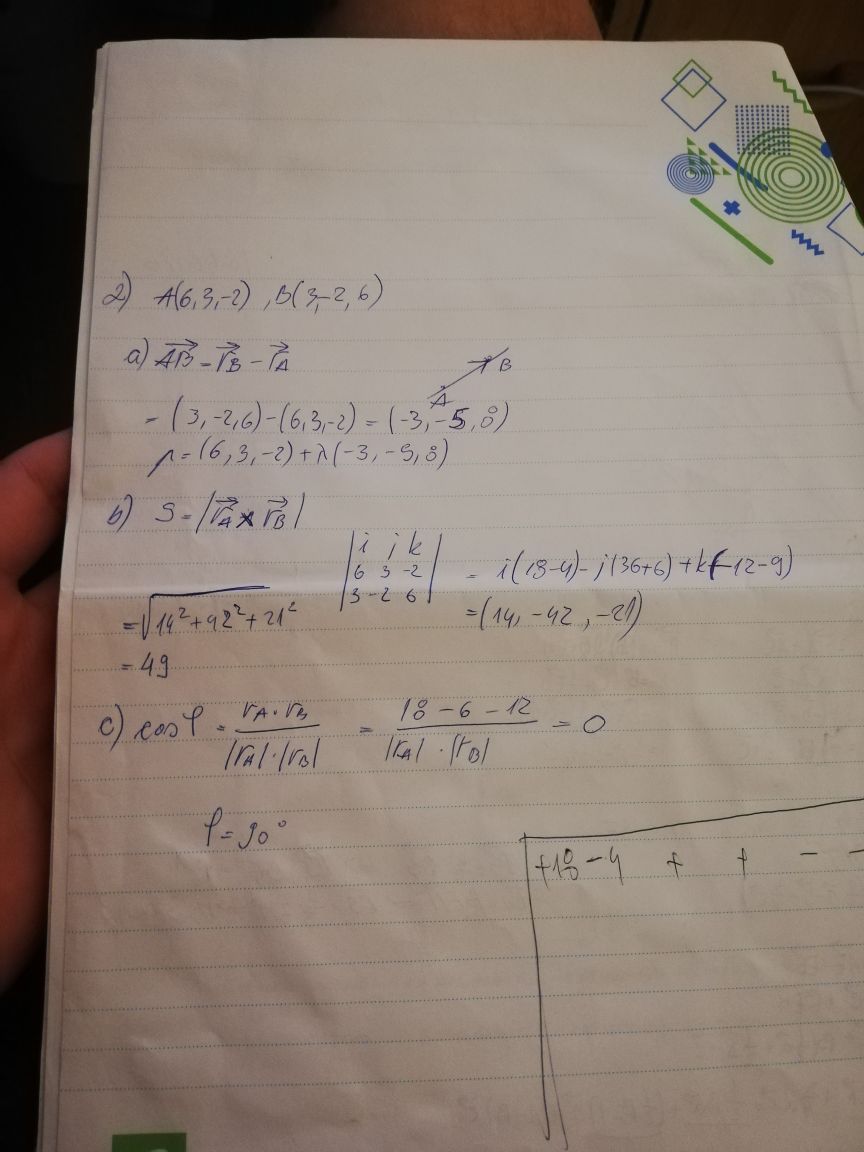 2) A(6,3,-2) , B(3,-2,6)
a) AB = r_B - r_A
A B
= (3,-2,6)-(6,3,-2) = (-3,-5,8)
p = (6,3,-2)+λ(-3,-5,8)
b) S = |r_A × r_B|
|i j k|
|6 3 -2| = i(18-4)-j(36+6)+k(-12-9)
|3 -2 6| =(14, -42, -21)
=√14²+42²+21²
= 49
c) cos φ = r_A · r_B / |r_A|·|r_B| = 18-6-12 / |r_A|·|r_B| = 0
φ = 90°
+18-4 + + - -